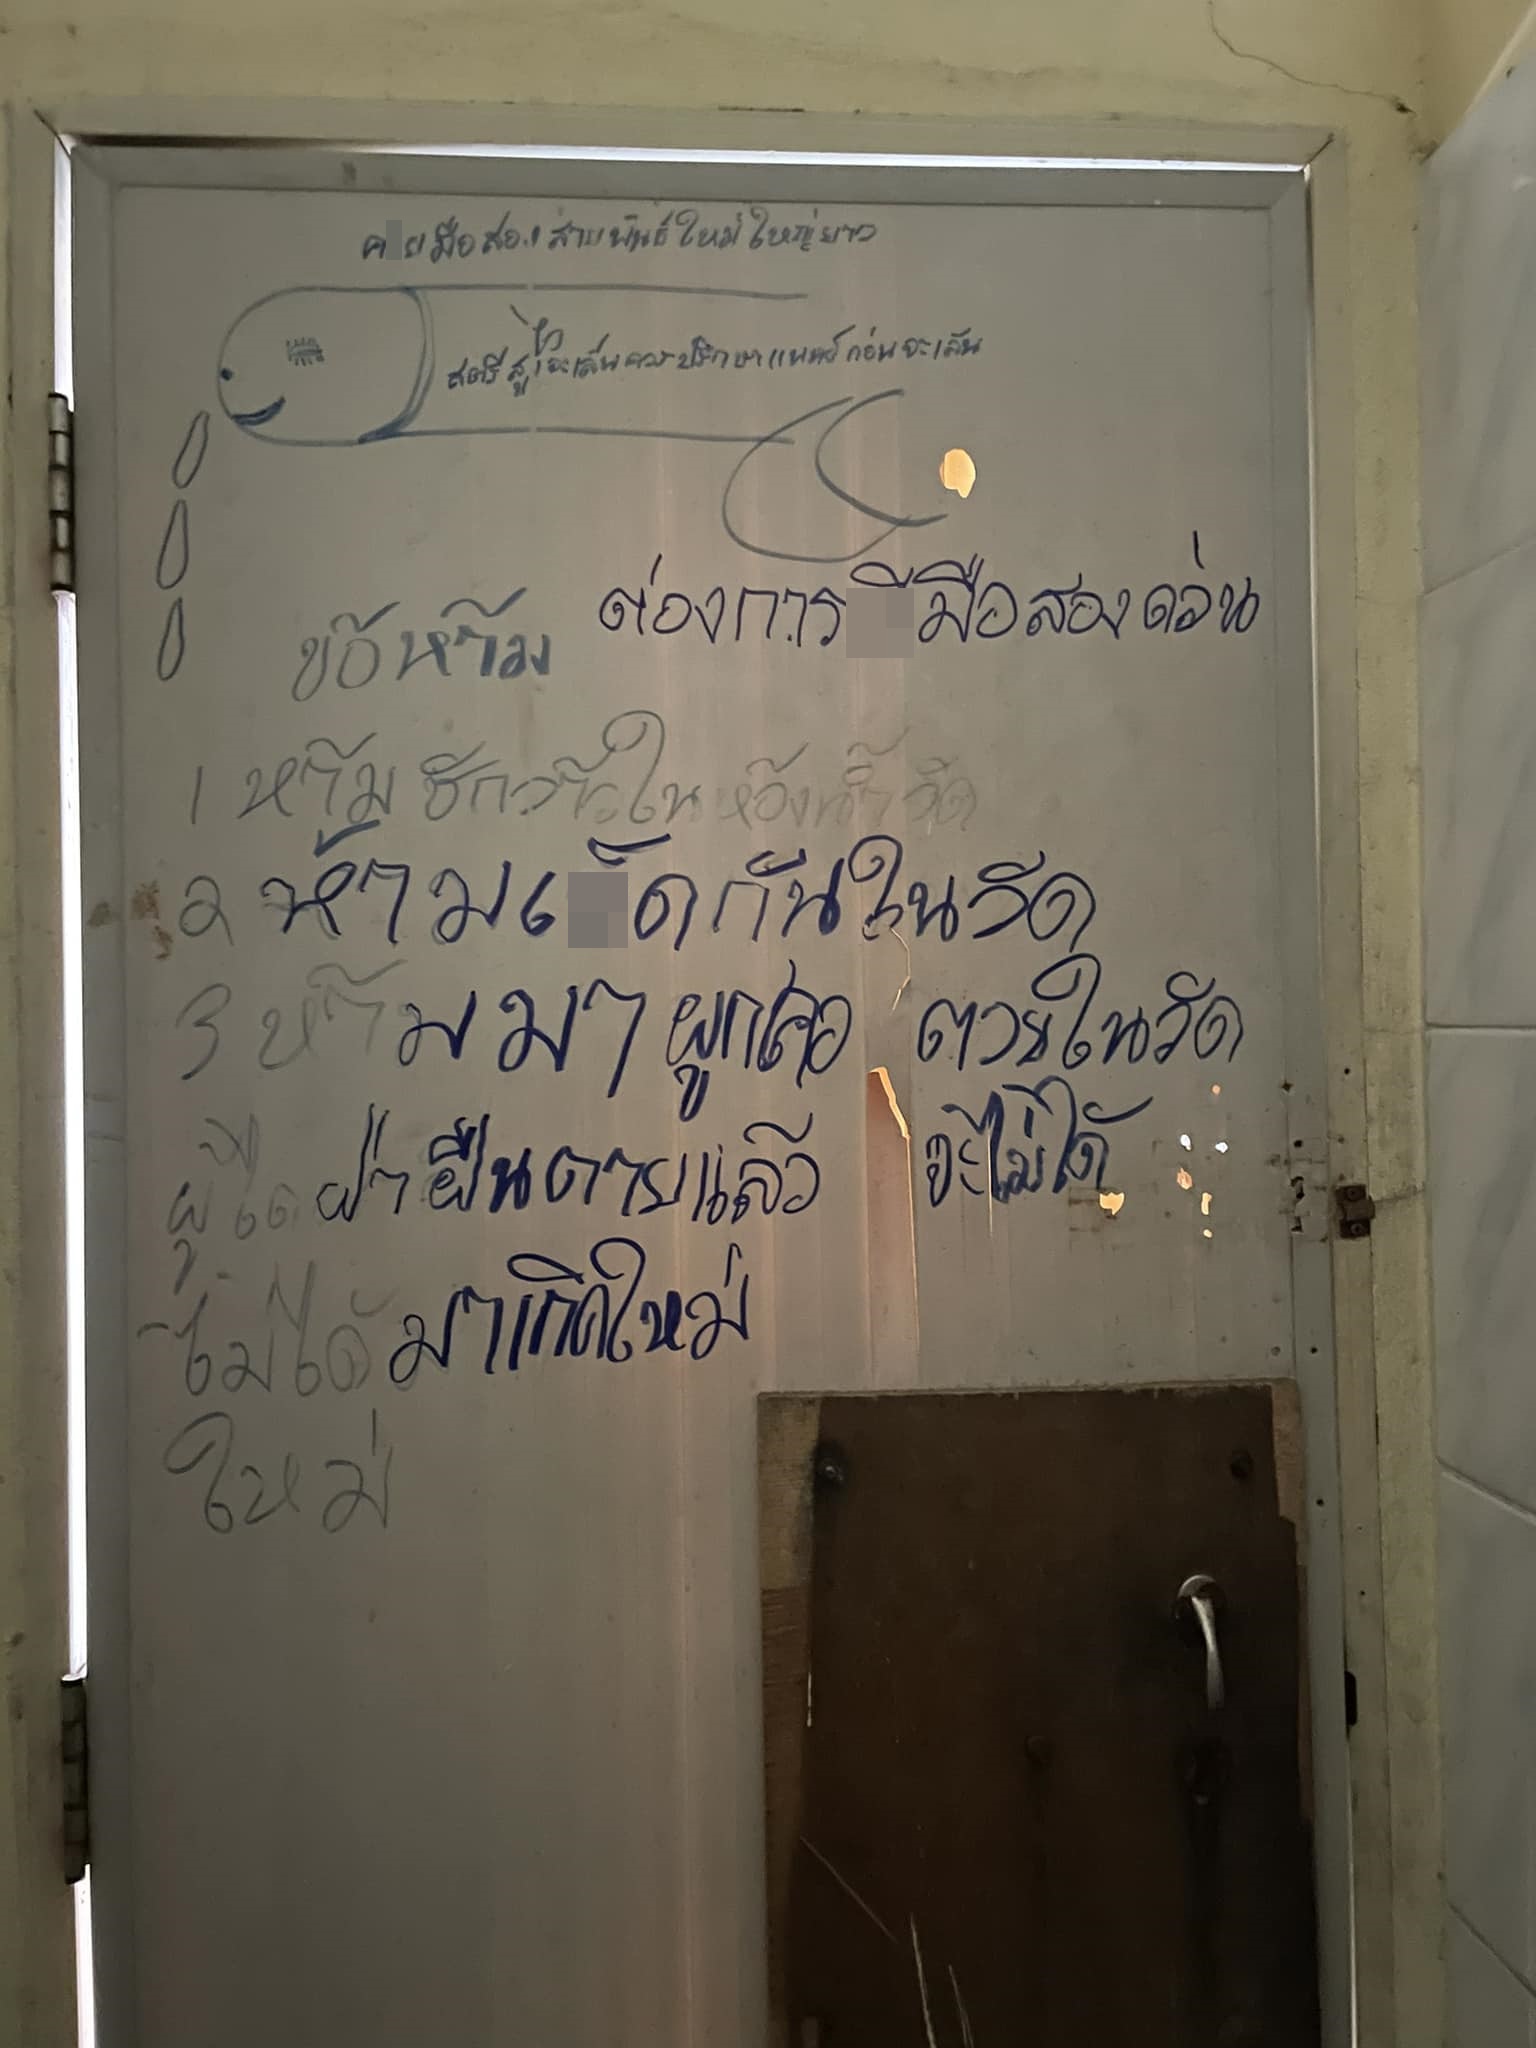 มือสอง สายพันธ์ใหม่ ใหญ่ยาว
สตรี จะเล่นควรปรึกษาแพทย์ก่อนจะเล่น
ต่องการ มือสองด่วน
ข้อห้าม
1 ห้ามชักว่าวในห้องน้ำวัด
2 ห้าม กันในวัด
3 ห้ามมาผูกคอ ตายในวัด
ผู้ใดฝ่าฝืนตายแล้ว จะไม่ได้
ไม่ได้มาเกิดใหม่
ใหม่